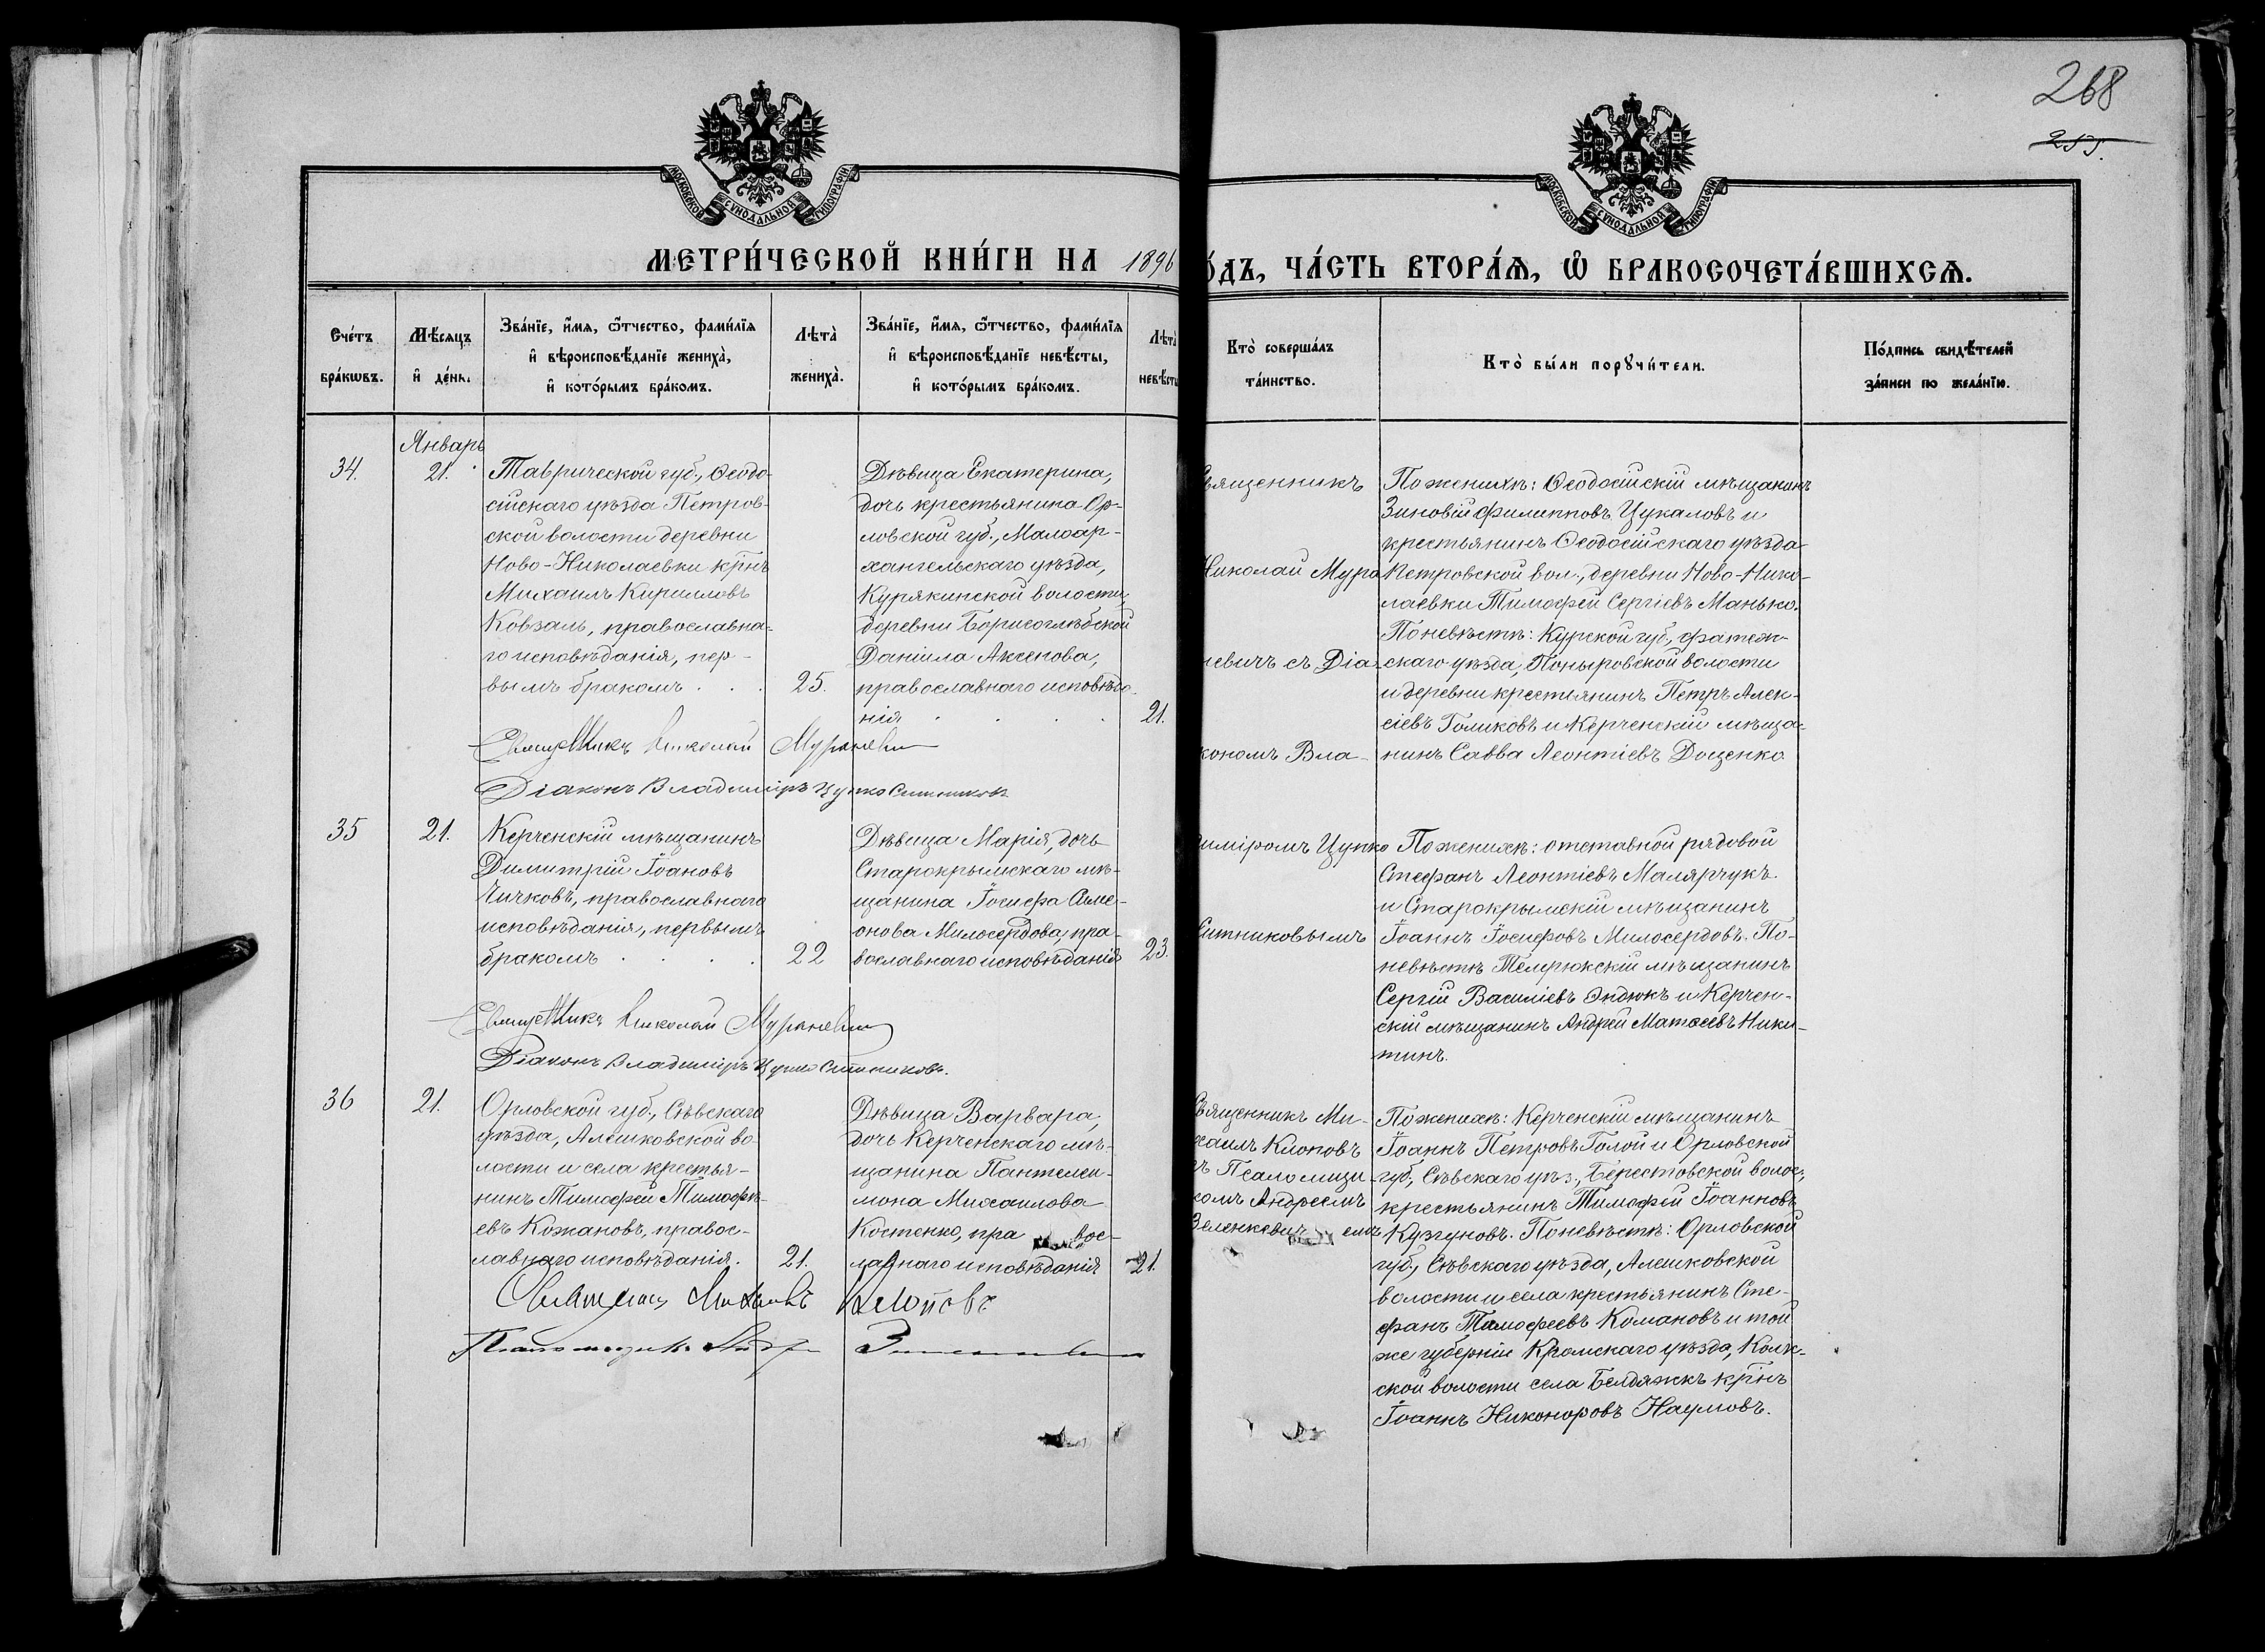 268
255.
МОСКОВСКОЙ СѴНОДАЛЬНОЙ ТИПОГРАФІИ
МОСКОВСКОЙ СѴНОДАЛЬНОЙ ТИПОГРАФІИ
МЕТРИ́ЧЕСКОЙ КНИ́ГИ НА 1896
О́ДЪ, ЧА́СТЬ ВТОРА́Ѧ, Ѽ БРАКОСОЧЕТА́ВШИХСѦ.
Сче́тъ бра́кѡвъ.
Мѣ́сѧцъ и҆ де́нь.
Зва́нїе, и҆́мѧ, ѻ҆́тчество, фами́лїѧ
и҆ вѣроисповѣ́данїе жениха̀,
и҆ кото́рымъ бра́комъ.
Лѣта̀ жениха̀.
Зва́нїе, и҆́мѧ, ѻ҆́тчество, фами́лїѧ
и҆ вѣроисповѣ́данїе невѣ́сты,
и҆ кото́рымъ бра́комъ.
Лѣта̀ невѣ́сты
Кто̀ соверша́лъ
та́инство.
Кто̀ бы́ли порꙋчи́тели.
По́дпись свидѣ́телей
за́писи по жела́нїю.
Январь
34.
21.
Таврической губ., Ѳеодо-
сійскаго уѣзда Петров-
ской волости деревни
Ново-Николаевки кр̃нъ
Михаилъ Кирилловъ
Ковзаль, православна-
го исповѣданія, пер-
вымъ бракомъ . . .
25.
Дѣвица Екатерина,
дочь крестьянина Ор-
ловской губ., Малоар-
хангельскаго уѣзда,
Курякинской волости,
деревни Борисоглѣбской
Даніила Аксенова,
православнаго исповѣда-
нія . . . .
21.
Священникъ Николай Мураневич
Діаконъ Владиміръ Цупко Ситниковъ
Священникъ
Николай Мура
невичъ съ Діа-
кономъ Вла-
диміромъ Цупко
Ситниковымъ
По женихѣ: Ѳеодосійскій мѣщанинъ
Зиновій Филипповъ Цукаловъ и
крестьянинъ Ѳеодосійскаго уѣзда
Петровской вол., деревни Ново-Нико-
лаевки Тимофей Сергіевъ Манько.
По невѣстѣ: Курской губ., Фатеж-
скаго уѣзда, Поныровской волости
и деревни крестьянинъ Петръ Алек-
сіевъ Голиковъ и Керченскій мѣща-
нинъ Савва Леонтіевъ Доценко
35
21.
Керченскій мѣщанинъ
Димитрій Іоановъ
Чичковъ, православнаго
исповѣданія, первымъ
бракомъ . . . .
22
Дѣвица Марія, дочь
Старокрымскаго мѣ-
щанина Іосифа Симе-
онова Милосердова, пра-
вославнаго исповѣданія
23.
Священникъ Николай Мураневич
Діаконъ Владиміръ Цупко Ситниковъ.
По женихѣ: отставной рядовой
Стефанъ Леонтіевъ Малярчукъ.
и Старокрымскій мѣщанинъ
Іоаннъ Іосифовъ Милосердовъ. По-
невѣстѣ Темрюкскій мѣщанинъ
Сергій Василіевъ Эндюкъ и Керчен-
скій мѣщанинъ Андрей Матѳеевъ Ники-
тинъ.
36
21.
Орловской губ., Сѣвскаго
уѣзда, Алешковской во-
лости и села крестья-
нинъ Тимофей Тимофѣ-
евъ Кожановъ, правос-
лавнаго исповѣданія.
21.
Дѣвица Варвара,
дочь Керченскаго мѣ-
щанина Пантелей-
мона Михаилова
Костенко, пра вос-
лавнаго исповѣданія
21.
Священникъ Михаилъ Клоповъ
Псаломщикъ Андрей
Священникъ Ми-
хаилъ Клоповъ
съ Псаломщи-
комъ Андреемъ
Зеленкевич емъ
По женихѣ: Керченскій мѣщанинъ
Іоаннъ Петровъ Голой и Орловской
губ., Сѣвскаго уѣз., Берестовской волос.,
крестьянинъ Тимофей Іоанновъ
Кузгуновъ. По невѣстѣ: Орловской
губ., Сѣвскаго уѣзда, Алешковской
волости и села крестьянинъ Сте-
фанъ Тимофеевъ Комановъ и той
же губерніи Кромскаго уѣзда, Колк-
ской волости села Белдяжкъ кр̃нъ
Іоаннъ Никоноровъ Наумовъ.